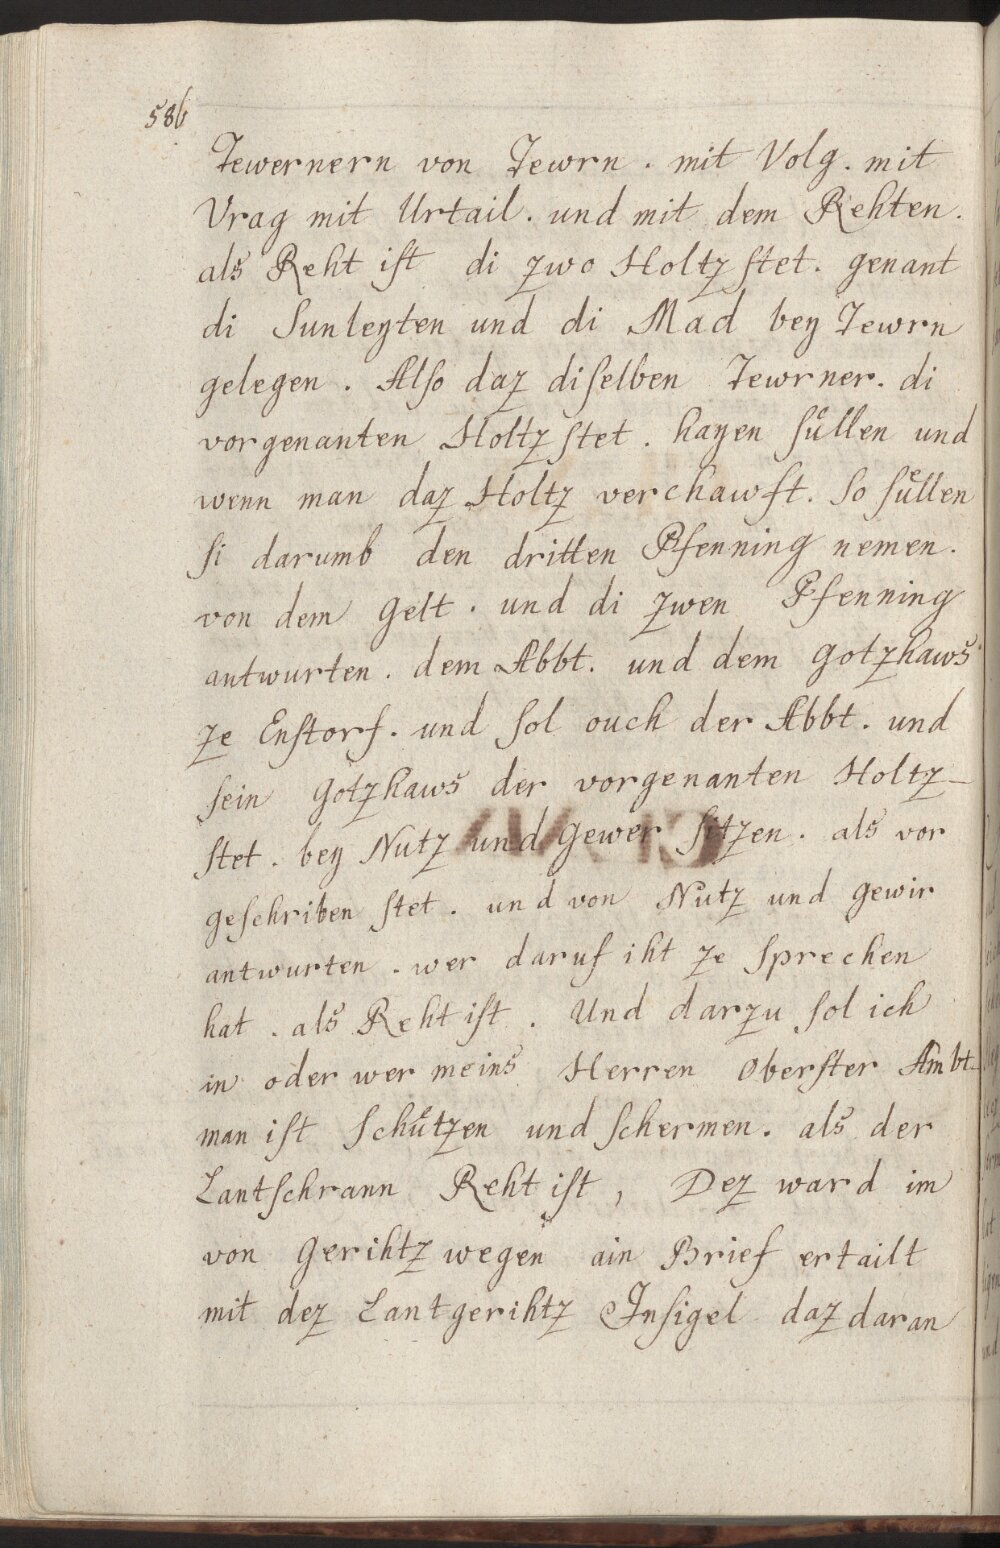 586
Tewernern von Tewrn . mit Volg . mit
Vrag mit Urtail . und mit dem Rehten .
als Reht iſt di zwo Holtzſtet . genant
di Sunleyten und di Mad bey Tewrn
gelegen . Alſo daz diſelben Tewrner . di
vorgenanten Holtzſtet . hayen ſuͤllen und
wenn man daz Holtz verchawft . So ſuͤllen
ſi darumb den dritten Pfenning nemen .
von dem Gelt . und di zwen Pfenning
antwurten . dem Abbt . und dem Gotzhaws
ze Enſtorf . und ſol ouch der Abbt . und
ſein Gotzhaws der vorgenanten Holtz-
ſtet . bey Nutz und Gewer ſitzen . als vor
geſchriben ſtet . und von Nutz und Gewir
antwurten . wer daruf iht ze Sprechen
hat . als Reht iſt . Und darzu ſol ich
in oder wer meins Herren Oberſter Ambt-
man iſt Schuͤtzen und ſchermen . als der
Lantſchrann Reht iſt , Dez ward im
von Gerihtz wegen ain Brief ertailt
mit dez Lantgerihtz Inſigel daz daran